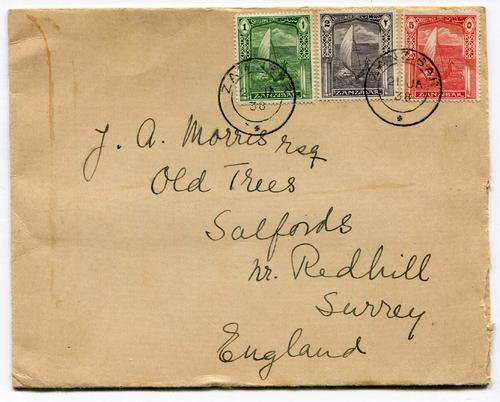 1 2 5
ZANZIBAR ZANZIBAR ZANZIBAR
ZANZIBAR
21 JA
38
J. A. Morris esq
Old Trees
Salfords
nr. Redhill
Surrey
England